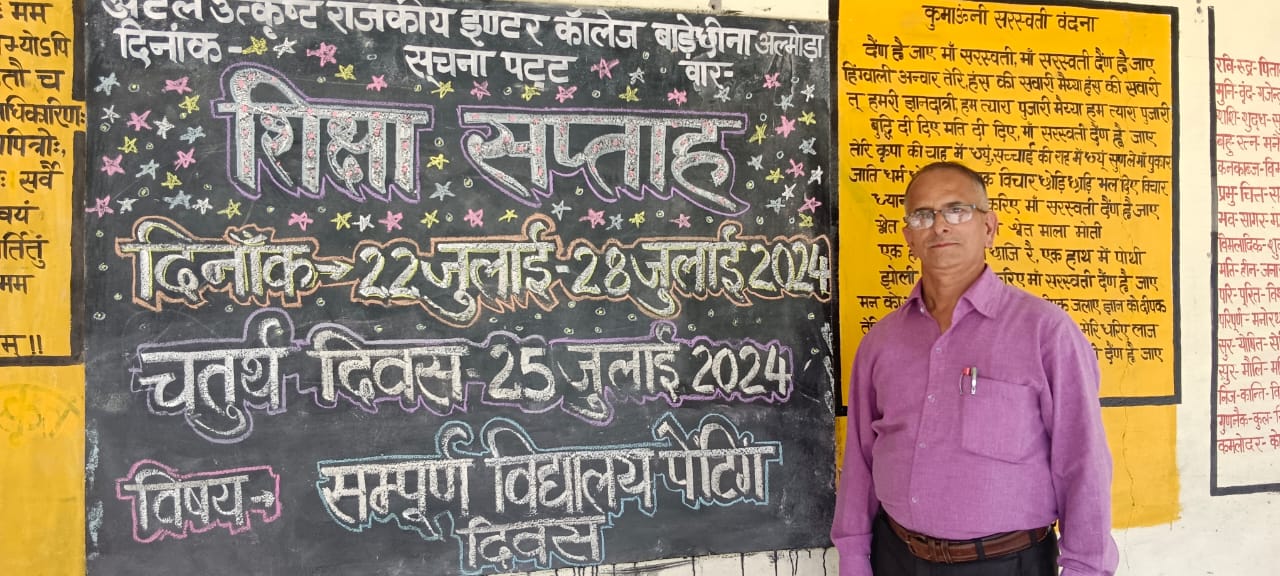 मम
ऽपि
तौ च
धिकारिणः
पित्रोः,
सर्वे
वयं
र्तितुं
मम
म्!!
अटल उत्कृष्ट राजकीय इण्टर कॉलेज बाड़ेछीना अल्मोड़ा
दिनांक - सूचना पट्ट वार-
शिक्षा सप्ताह
दिनाँक→22जुलाई-28जुलाई 2024
चतुर्थ दिवस-25 जुलाई 2024
विषय→ सम्पूर्ण विद्यालय पेंटिंग
दिवस
कुमाऊंनी सरस्वती वंदना
दैंण है जाए माँ सरस्वती, माँ सरस्वती दैंण है जाए
हिंगवाली अन्वार तेरि, हंस की सवारी मैय्या हंस की सवारी
तू हमरी ज्ञानदात्री, हम त्यारा पुजारी मैय्या हम त्यारा पुजारी
बुद्धि दी दिए मति दी दिए, माँ सरस्वती दैंण है जाए
तेरि कृपा की चाह में छ्यूं, सच्चाई की राह में छ्यूं सुणले माँ पुकार
जाति धर्म विचार छोड़ि छाड़ि भल दिए विचार
ध्यान करिए माँ सरस्वती दैंण है जाए
श्वेत श्वेत माला मोती
एक छाजि रै, एक हाथ में पोथी
झोली करिए माँ सरस्वती दैंण है जाए
मन का जलाए ज्ञान को दीपक
मेरि धरिए लाज
दैंण है जाए
रवि-रुद्र-पिता
मुनि-वृंद-गजे
शशि-शुद्ध-
बहु-रत्न-मन
कनकाब्ज-वि
प्रभु-चित्त-
भव-सागर-
विमलादिक-शु
मति-हीन-जना
परि-पूरित-वि
परिपूर्ण-मनोर
सुर-योषित-से
सुर-मौलि-म
निज-कान्ति-वि
गुणनैक-कुल-
कमलोदर-को